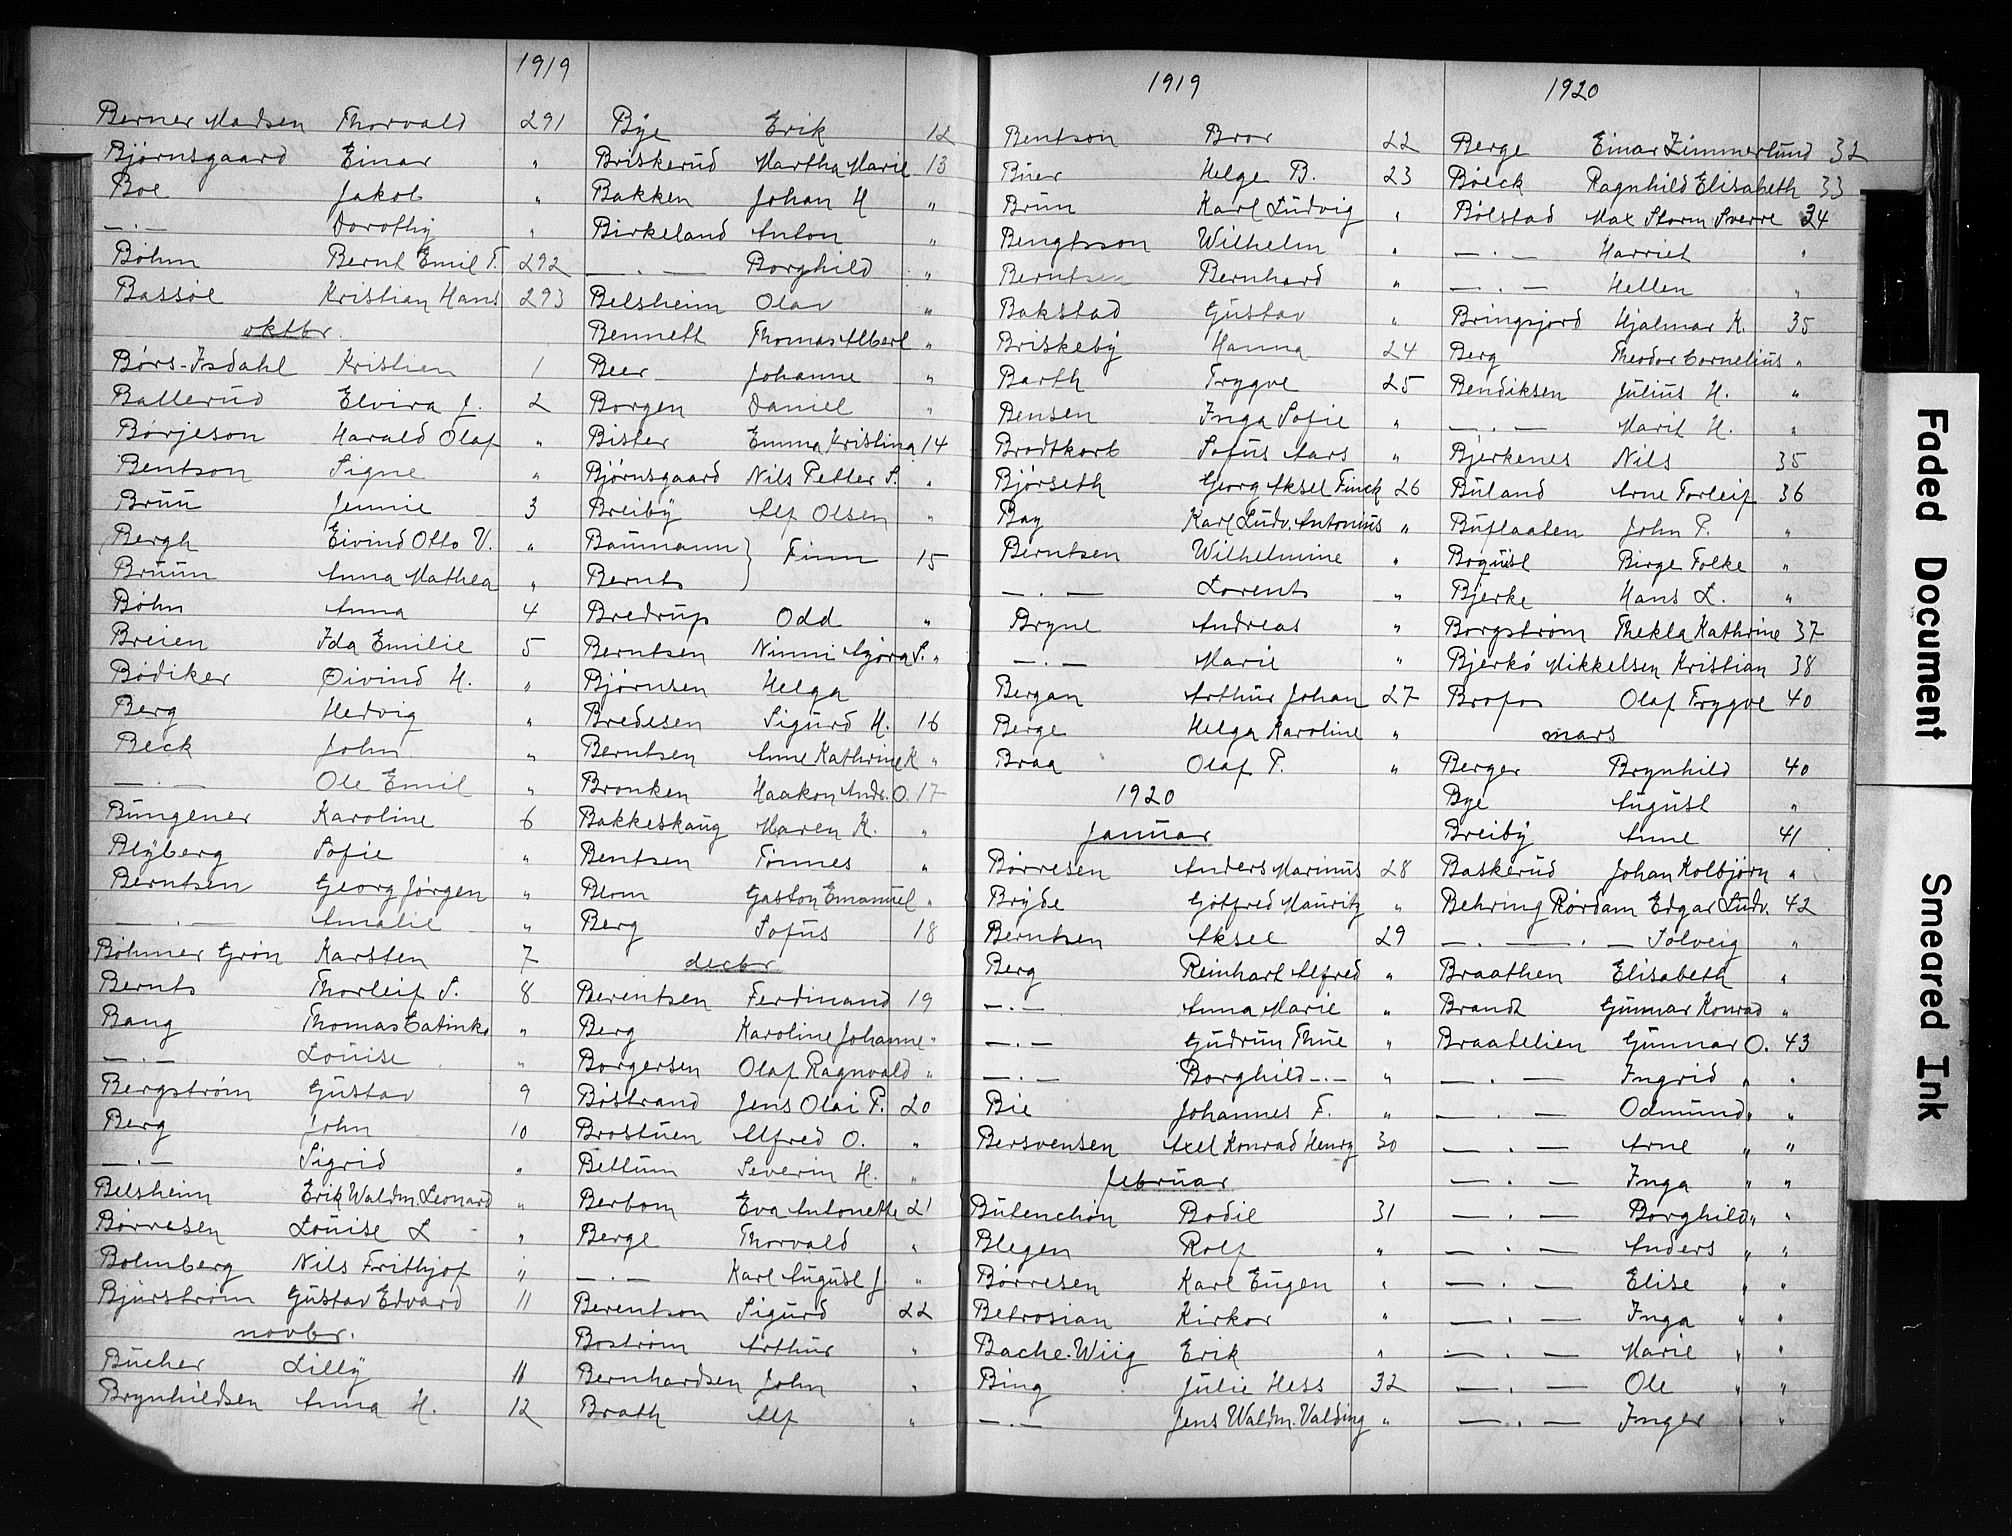 1919
Berner Madsen Thorvald 291
Bjørnsgaard Einar "
Boe Jakob "
—.— Dorothy "
Bøhm Bernt Emil F. 292
Bassøe Kristian Hans 293
oktbr.
Børs-Isdahl Kristian 1
Ballerud Elvira J. 2
Børjeson Harald Olaf "
Bentson Signe "
Bruu Jennie 3
Bergh Eivind Otto V. "
Bruun Anna Mathea "
Bøhn Anna 4
Breien Ida Emilie 5
Bødiker Øivind H. "
Berg Hedvig "
Beck John "
—.— Ole Emil "
Bungener Karoline 6
Blyberg Sofie "
Berntsen Georg Jørgen "
—.— Amalie "
Bøhmer Grøn Karsten 7
Bernts Thorleif S. 8
Bang Thomas Catinka "
—.— Louise "
Bergstrøm Gustav 9
Berg John 10
—.— Sigrid "
Belsheim Erik Waldm. Leonard "
Børresen Louise L "
Bolmberg Nils Frithjof "
Bjurstrøm Gustav Edvard 11
novbr.
Bucher Lilly 11
Brynhildsen Anna H. 12
Bye Erik 12
Briskerud Martha Marie 13
Bakken Johan H "
Birkeland Anton "
—.— Borghild "
Belsheim Olav "
Bennett Thomas Albert "
Beer Johanne "
Borgen Daniel "
Bister Emma Kristina 14
Bjørnsgaard Nils Petter S. "
Breiby Alf Olsen "
Baumann } Finn 15
Bernts }
Bredrup Odd "
Berntsen Ninni Agøra S. "
Bjørnsen Helga
Bredesen Sigurd H. 16
Berntsen Anne Kathrine K "
Bronken Haakon Andr. O. 17
Bakkeskaug Maren K. "
Bentsen Tønnes "
Blom Gaston Emanuel "
Berg Sofus 18
decbr
Berentsen Ferdinand 19
Berg Karoline Johanne "
Borgersen Olaf Ragnvald "
Bøstrand Jens Olai P. 20
Brostuen Alfred O. "
Bettum Severin H. "
Berbom Eva Antonette 21
Berge Thorvald "
—.— Karl August J "
Berentson Sigurd 22
Bostrøm Arthur "
Bernhardsen John "
Brath Alf "
1919
Bentson Bror 22
Buer Helge B. 23
Brun Karl Ludvig "
Bengtsson Wilhelm "
Berntsen Bernhard "
Bakstad Gustav "
Briskeby Hanna 24
Barth Trygve 25
Bensen Inga Sofie "
Brodtkorb Sofus Aars "
Bjørseth Georg Aksel Finck 26
Bay Karl Ludv. Antonius "
Berntsen Wilhelmine "
—.— Lorents "
Bryne Andreas "
—.— Marie "
Bergan Arthur Johan 27
Berge Helga Karoline "
Braa Olaf P. "
1920
Januar
Børresen Anders Marinus 28
Bryde Gotfred Mauritz "
Berntsen Aksel 29
Berg Reinhart Alfred "
—.— Anna Marie "
—.— Gudrun Thue "
—.— Borghild -.- "
Bie Johannes F. "
Bersvensen Axel Konrad Henry 30
februar
Butenchøn Bodil 31
Blegen Rolf "
Børresen Karl Eugen "
Betrosian Kirkor "
Bache-Wiig Erik "
Bing Julie Hess 32
—.— Jens Waldm. Valding "
1920
Berge Einar Zimmerlund 32
Bøeck Ragnhild Elisabeth 33
Bølstad Max Storm Sverre 34
—.— Harriet "
—.— Hellen "
Bringsjord Hjalmar K. 35
Berg Theodor Cornelius "
Bendiksen Julius H. "
—.— Marit H. "
Bjerkenes Nils 35
Buland Arne Torleif 36
Buflaaten John P. "
Boquist Birge Folke "
Bjerke Hans L. "
Borgstrøm Thekla Kathrine 37
Bjerkø Mikkelsen Kristian 38
Brofos Olaf Trygve 40
mars
Berger Brynhild 40
Bye August "
Breiby Anne 41
Baskerud Johan Kolbjørn "
Behring Rørdam Edgar Ludv. 42
—.—.— Solveig "
Braathen Elisabeth "
Brandt Gunnar Konrad "
Braatelien Gunnar O. 43
—.— Ingrid " "
—.— Odmund " "
—.— Arne " "
—.— Inga " "
—.— Borghild " "
—.— Anders " "
—.— Elise " "
—.— Inga " "
—.— Marie " "
—.— Ole " "
—.— Inger " "
Faded Document
Smeared Ink